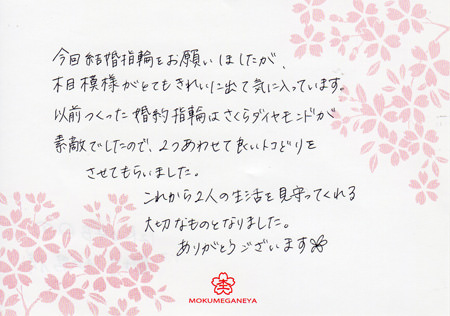 今回結婚指輪をお願いしましたが、
木目模様がとてもきれいに出て気に入っています。
以前つくった婚約指輪はさくらダイヤモンドが
素敵でしたので、2つあわせて良いトコどりを
させてもらいました。
これから2人の生活を見守ってくれる
大切なものとなりました。
ありがとうございます
MOKUMEGANEYA